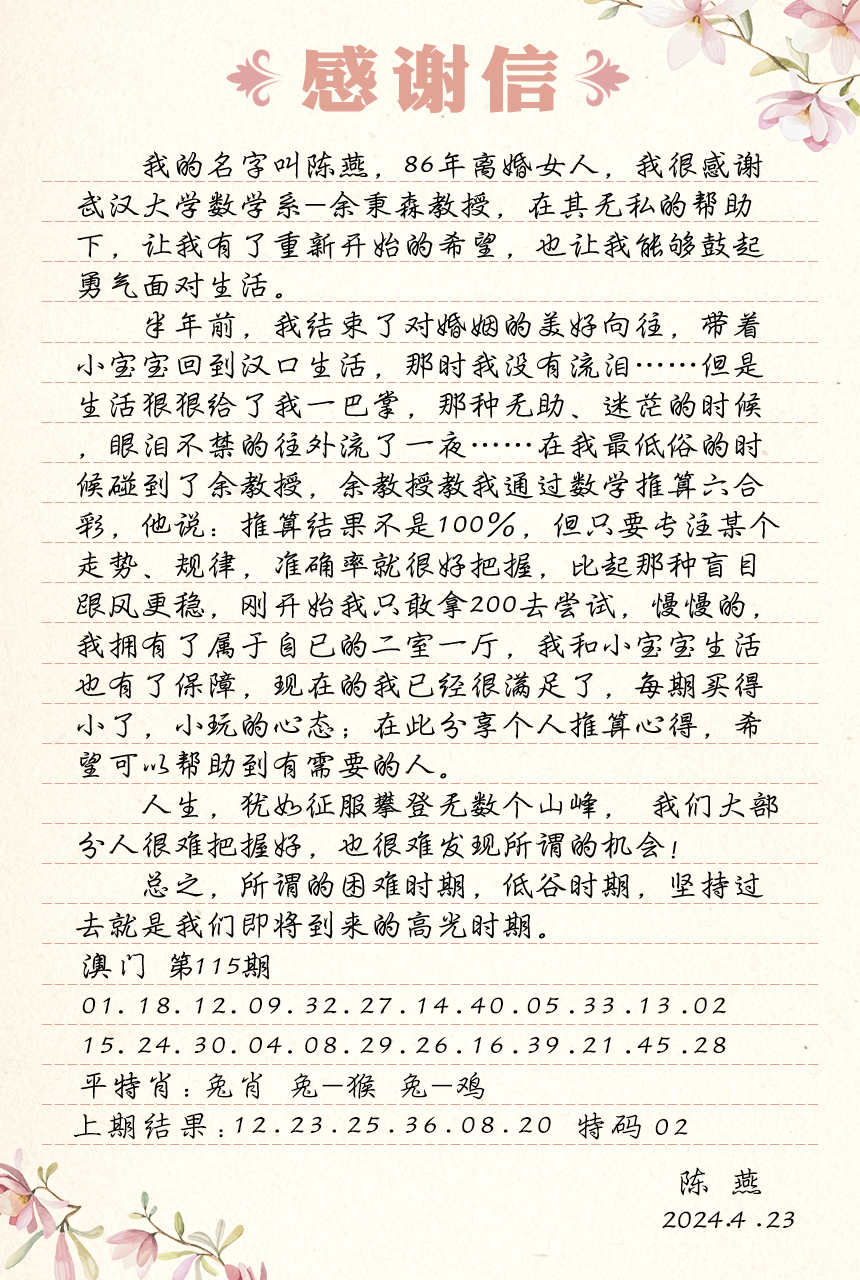 感谢信
我的名字叫陈燕，86年离婚女人，我很感谢
武汉大学数学系—余秉森教授，在其无私的帮助
下，让我有了重新开始的希望，也让我能够鼓起
勇气面对生活。
半年前，我结束了对婚姻的美好向往，带着
小宝宝回到汉口生活，那时我没有流泪……但是
生活狠狠给了我一巴掌，那种无助、迷茫的时候
，眼泪不禁的往外流了一夜……在我最低俗的时
候碰到了余教授，余教授教我通过数学推算六合
彩，他说：推算结果不是100%，但只要专注某个
走势、规律，准确率就很好把握，比起那种盲目
跟风更稳，刚开始我只敢拿200去尝试，慢慢的，
我拥有了属于自已的二室一厅，我和小宝宝生活
也有了保障，现在的我已经很满足了，每期买得
小了，小玩的心态；在此分享个人推算心得，希
望可以帮助到有需要的人。
人生，犹如征服攀登无数个山峰， 我们大部
分人很难把握好，也很难发现所谓的机会！
总之，所谓的困难时期，低谷时期，坚持过
去就是我们即将到来的高光时期。
澳门 第115期
01.18.12.09.32.27.14.40.05.33.13.02
15.24.30.04.08.29.26.16.39.21.45.28
平特肖：兔肖 兔—猴 兔—鸡
上期结果：12.23.25.36.08.20 特码 02
陈 燕
2024.4.23